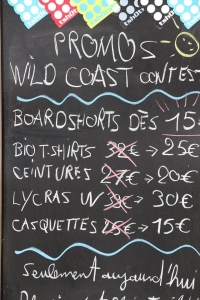 PROMOS
WILD COAST CONTEST
BOARDSHORTS DÈS 15
BIO T-SHIRTS 32€ → 25€
CEINTURES 27€ → 20€
LYCRAS UV → 30€
CASQUETTES → 15€
Seulement aujourd'hui